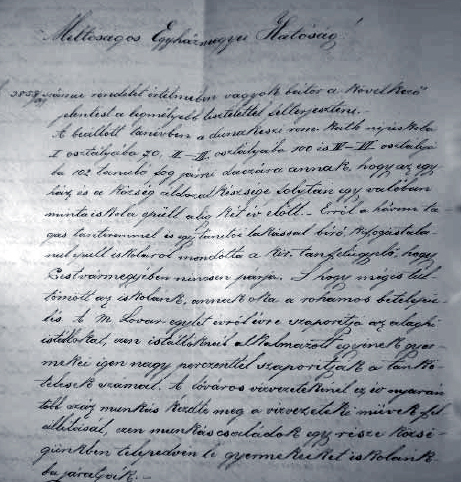 Méltóságos Egyházmegyei Hatóság!
3858 számú rendelet értelmében vagyok bátor a következő
jelentést a legmélyebb tisztelettel előterjeszteni.-
A beállott tanévben a dunakeszi rom. kath. népiskola
I osztályába 70, II-III. osztályába 100 és IV-VI osztályá
ba 102 tanuló fog járni daczára annak, hogy az egy
ház és a község áldozatkészsége folytán egy valóban
mintaiskola épült alig két év előtt.- Erről a három ta
gas tanteremmel és tanítói lakással bíró, kifogástala-
nul épült iskoláról mondotta a kir. tanfelügyelő, hogy
Pestvármegyében nincsen párja. S hogy mégis túl
tömött az iskolánk, annak oka a rohamos betelepü
lés. A M. Lovar egylet évről évre szaporítja az alagi
istállókat, ezen istállóknál alkalmazott egyének gyer
mekei igen nagy perczenttel szaporítják a tankö-
telesek számát. A főváros vízvezetékénél ez év nyarán
több száz munkás kezdte meg a vízvezetéki művek fel
állítását, ezen munkáscsaládok egy része közsé-
günkben telepedvén le gyermekeiket iskolánk
ba járatják.-